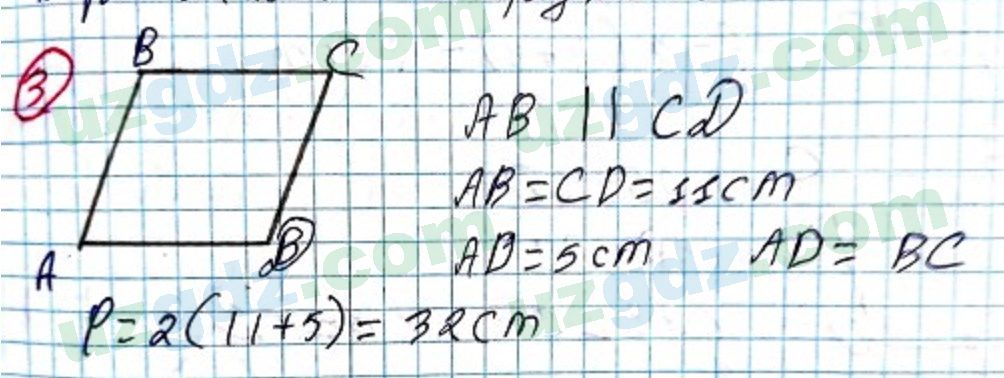 3
B C
AB || CD
AB = CD = 11 cm
A D
AD = 5 cm AD = BC
P = 2(11 + 5) = 32 cm
uzgdz.com
uzgdz.com
uzgdz.com
uzgdz.com